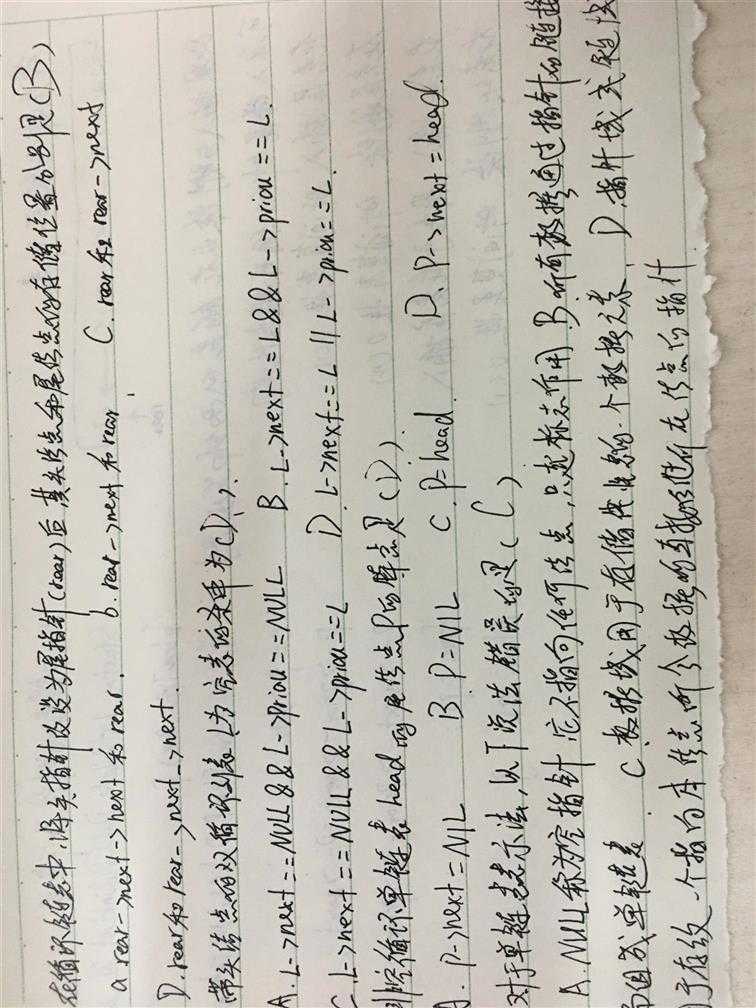 在循环链表中,将头指针改设为尾指针(rear)后,其头结点和尾结点的存储位置分别是(B)
a. rear->next->next和rear. b. rear->next和rear. C. rear和rear->next
D. rear和rear->next->next.
带头结点的双循环列表L为空表的条件为(D).
A. L->next==NULL&&L->priou==NULL B. L->next==L&&L->priou==L.
C. L->next==NULL&&L->priou==L D. L->next==L||L->priou==L.
非空循环单链表head的尾结点P的特点是(D).
A. P->next=NIL B. P=NIL C. P=head. D. P->next=head.
对于单链表表示法,以下说法错误的是(C)
A. NULL称为空指针,它不指向任何结点,只起标志作用 B.所有数据通过指针的链接
组成单链表. C.数据域用于存储线性表的一个数据元素 D.指针域或链域
于存放一个指向本结点所含数据的直接后继所在结点的指针